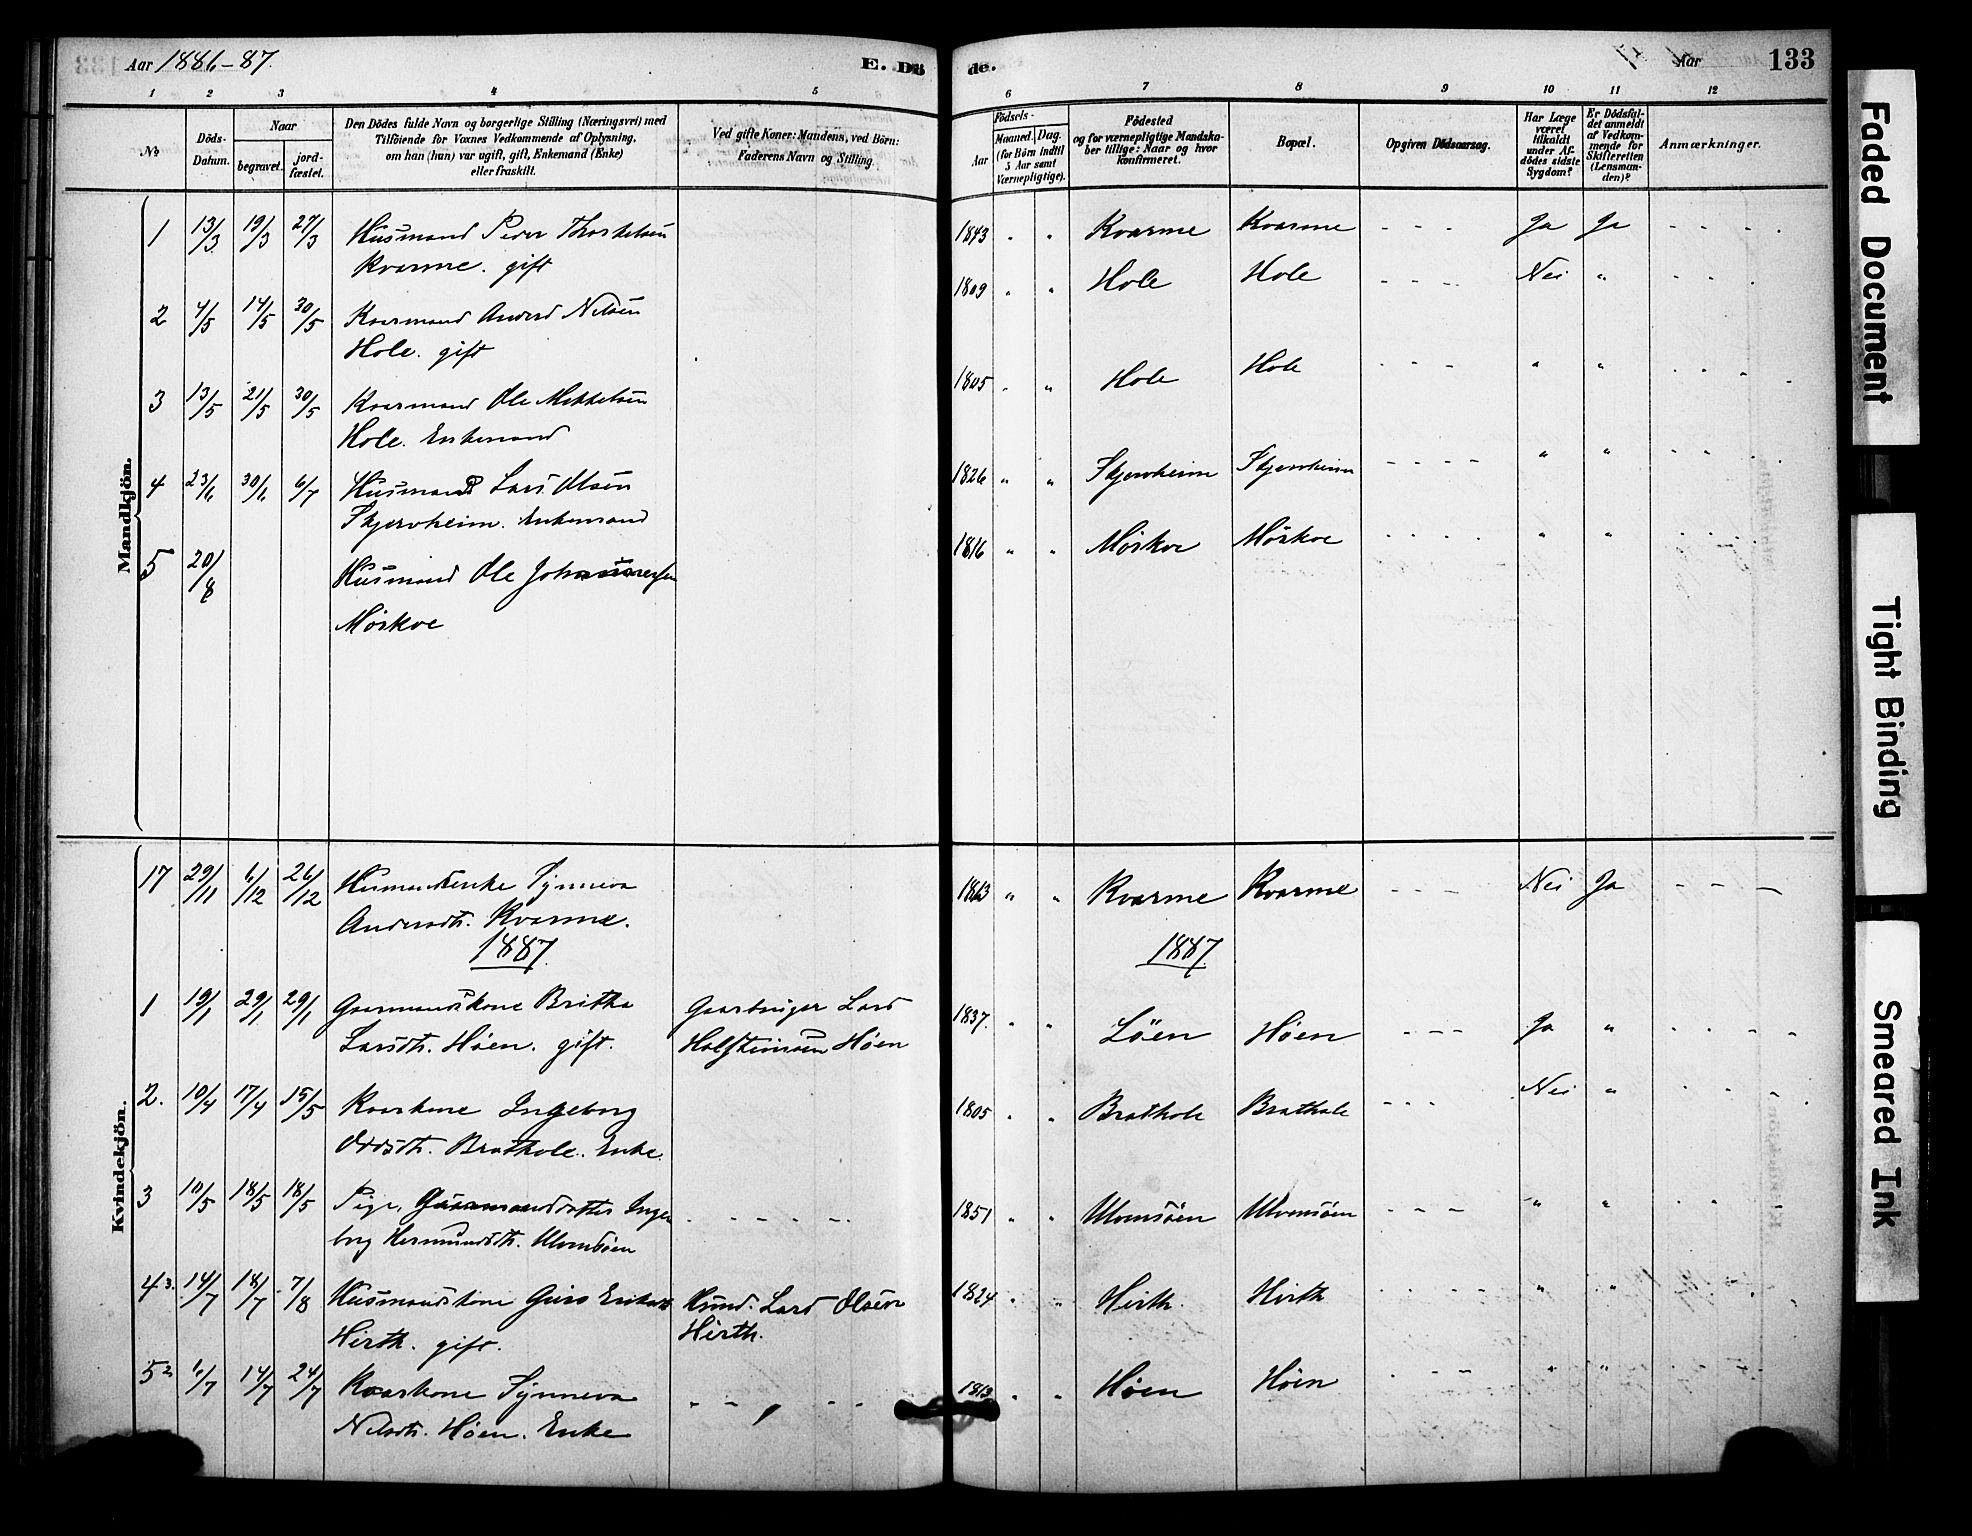 133
Aar 1886-87.
E. Dö
de.
Aar
133
1 2 3 4 5 6 7 8 9 10 11 12
№
Döds-Datum.
Naar
begravet.
jord-fæstet.
Den Dödes fulde Navn og borgerlige Stilling (Næringsvei) med
Tilföiende for Voxnes Vedkommende af Oplysning,
om han (hun) var ugift, gift, Enkemand (Enke)
eller fraskilt.
Ved gifte Koner: Mandens, ved Börn:
Faderens Navn og Stilling.
Födsels-
Aar
Maaned. Dag.
(for Börn indtil
5 Aar samt
Værnepligtige).
Födested
og for værnepligtige Mandska-
ber tillige: Naar og hvor
konfirmeret.
Bopæl.
Opgiven Dödsaarsag.
Har Læge
været
tilkaldt
under Af-
dödes sidste
Sygdom?
Er Dödsfal-
det anmeldt
af Vedkom-
mende for
Skifteretten
(Lensman-
den)?
Anmærkninger.
Mandkjön.
1 13/3 19/3 27/3 Husmand Peder Thorkelsen 1843 " " Kvarme Kvarme - - - Ja Ja - - - -
Kvarme. gift
2 4/5 14/5 30/5 Kaarmand Anders Nilsen 1809 " " Hole Hole - - - - Nei " - -
Hole. gift
3 13/5 21/5 30/5 Kaarmand Ole Mikkelsen 1805 " " Hole Hole - - - " " - - - -
Hole. Enkemand
4 23/6 30/6 6/7 Husmand Lars Olsen 1826 " " Skjervheim Skjervheim - - - - " " - - - -
Skjervheim. Enkemand
5 20/8 Husmand Ole Johannesen 1816 " " Mørkve Mörkve - - - - " " - - -
Mørkve
Kvindekjön.
17 29/11 6/12 26/12 Husmandsenke Synneva 1863 " " Kvarme Kvarme - - - Nei Ja - - -
Andersdtr. Kvarme.
1887. 1887
1 19/1 29/1 29/1 Gaarmandskone Britha Gaarbruger Lars 1837. " " Löen Höen - - - Ja " - - - -
Larsdtr. Höen. gift. Holfsteinsen Höen
2. 10/4 17/4 15/5 Kaarkone Ingeborg 1805 " " Brathole Brathole - - - Nei " - - -
Oddsdtr. Brathole. Enke.
3 10/5 18/5 18/5 Pige, Gaarmandsdatter Inge - - - - - 1851 " " Ulvmsöen Ulvmsöen - - - " " - -
borg Hermundsdtr. Ulvmsöen
4 3. 14/7 18/7 7/8 Husmandskone Guro Eriksd Husmd. Lars Olsen 1824 " " Hirth. Hirth - - - - " "
Hirth. gift. Hirth.
5 2 6/7 14/7 24/7 Kaarkone Synneva - - - - - 1813 " " Höen Höen - - - " "
Nilsdtr. Höen. Enke
Faded Document
Tight Binding
Smeared Ink